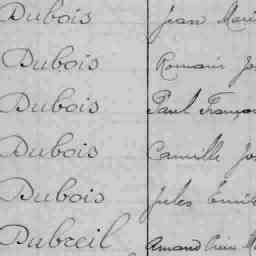 Dubois Jean Mari
Dubois Romain Jo
Dubois Paul Françoi
Dubois Camille Jos
Dubois Jules Emil
Dubreil Amand